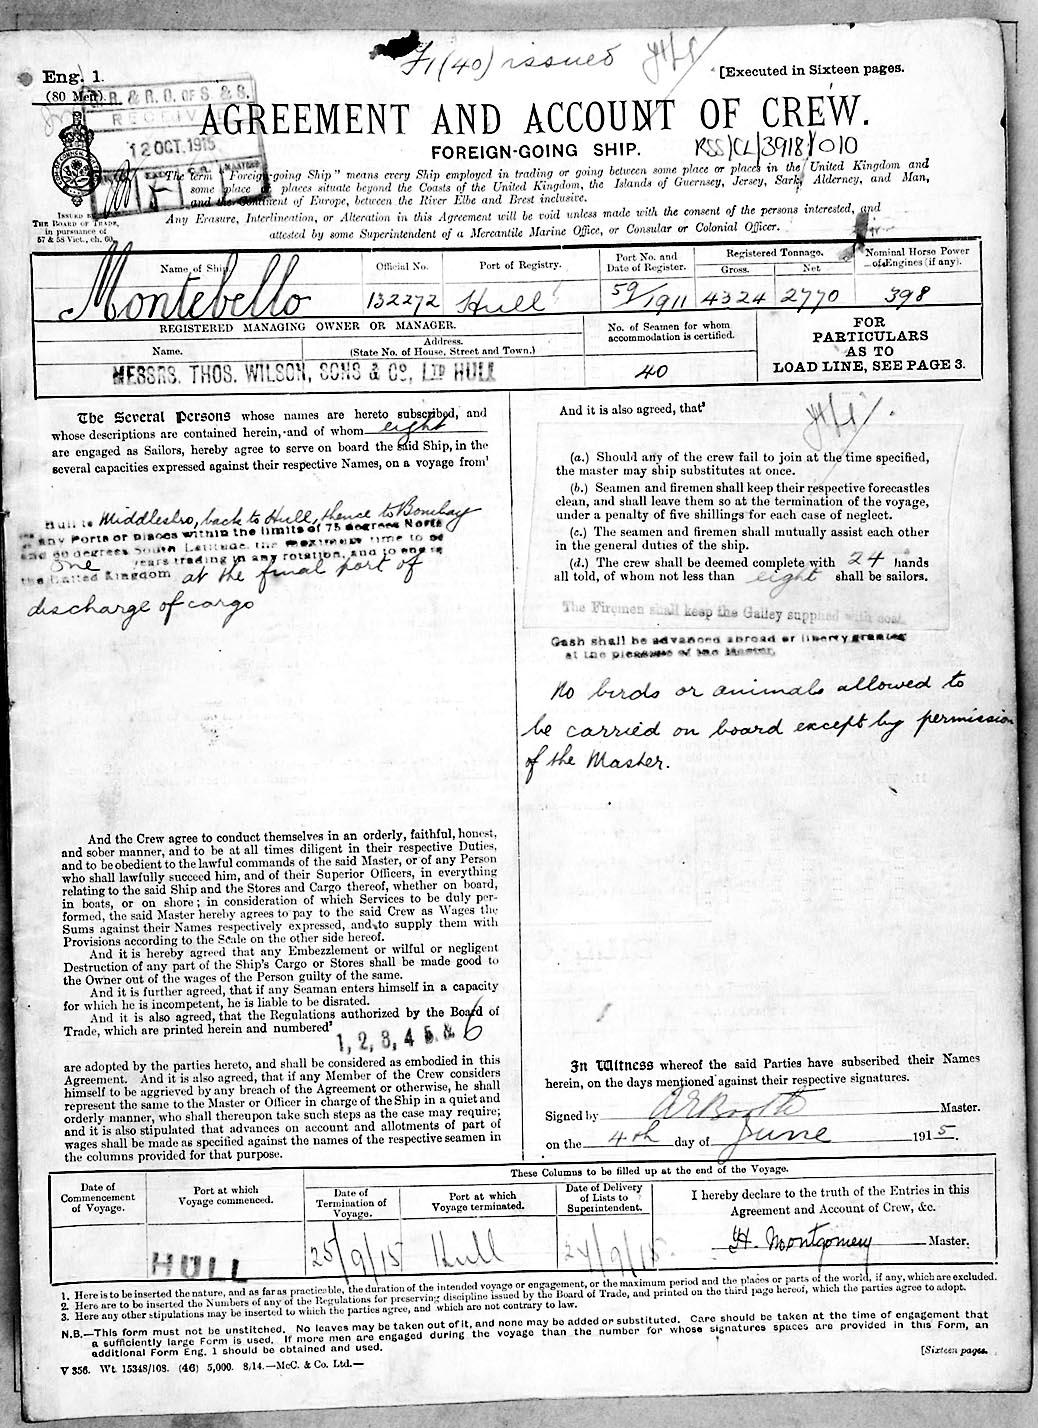 F1 (40) issued
Eng. 1.
(80 Men).
[Executed in Sixteen pages.
R. & R. O. OF S. & S.
RECEIVED
12 OCT. 1915
AGREEMENT AND ACCOUNT OF CREW.
FOREIGN-GOING SHIP.
RSS/CL/3918/010
The term "Foreign-going Ship" means every Ship employed in trading or going between some place or places in the United Kingdom and
some place or places situate beyond the Coasts of the United Kingdom, the Islands of Guernsey, Jersey, Sark, Alderney, and Man,
and the Continent of Europe, between the River Elbe and Brest inclusive.
Any Erasure, Interlineation, or Alteration in this Agreement will be void unless made with the consent of the persons interested, and
attested by some Superintendent of a Mercantile Marine Office, or Consular or Colonial Officer.
ISSUED BY
THE BOARD OF TRADE,
in pursuance of
57 & 58 Vict., ch. 60.
Name of Ship.
Official No.
Port of Registry.
Port No. and
Date of Register.
Registered Tonnage.
Gross.
Net
Nominal Horse Power
of Engines (if any).
Montebello
132272
Hull
59/1911
4324
2770
398
REGISTERED MANAGING OWNER OR MANAGER.
Name.
Address.
(State No. of House, Street and Town.)
No. of Seamen for whom
accommodation is certified.
FOR
PARTICULARS
AS TO
LOAD LINE, SEE PAGE 3.
MESSRS. THOS. WILSON, SONS & CO, LTD HULL
40
The Several Persons whose names are hereto subscribed, and
whose descriptions are contained herein, and of whom eight
are engaged as Sailors, hereby agree to serve on board the said Ship, in the
several capacities expressed against their respective Names, on a voyage from¹
Hull to Middlesbro, back to Hull, thence to Bombay
any Ports or places within the limits of 75 degrees North
and 60 degrees South Latitude, the maximum time to be
One years trading in any rotation, and to end in
the United Kingdom at the final port of
discharge of cargo
And the Crew agree to conduct themselves in an orderly, faithful, honest,
and sober manner, and to be at all times diligent in their respective Duties,
and to be obedient to the lawful commands of the said Master, or of any Person
who shall lawfully succeed him, and of their Superior Officers, in everything
relating to the said Ship and the Stores and Cargo thereof, whether on board,
in boats, or on shore; in consideration of which Services to be duly per-
formed, the said Master hereby agrees to pay to the said Crew as Wages the
Sums against their Names respectively expressed, and to supply them with
Provisions according to the Scale on the other side hereof.
And it is hereby agreed that any Embezzlement or wilful or negligent
Destruction of any part of the Ship's Cargo or Stores shall be made good to
the Owner out of the wages of the Person guilty of the same.
And it is further agreed, that if any Seaman enters himself in a capacity
for which he is incompetent, he is liable to be disrated.
And it is also agreed, that the Regulations authorized by the Board of
Trade, which are printed herein and numbered²
1, 2, 3, 4 5 & 6
are adopted by the parties hereto, and shall be considered as embodied in this
Agreement. And it is also agreed, that if any Member of the Crew considers
himself to be aggrieved by any breach of the Agreement or otherwise, he shall
represent the same to the Master or Officer in charge of the Ship in a quiet and
orderly manner, who shall thereupon take such steps as the case may require;
and it is also stipulated that advances on account and allotments of part of
wages shall be made as specified against the names of the respective seamen in
the columns provided for that purpose.
And it is also agreed, that³
(a.) Should any of the crew fail to join at the time specified,
the master may ship substitutes at once.
(b.) Seamen and firemen shall keep their respective forecastles
clean, and shall leave them so at the termination of the voyage,
under a penalty of five shillings for each case of neglect.
(c.) The seamen and firemen shall mutually assist each other
in the general duties of the ship.
(d.) The crew shall be deemed complete with 24 hands
all told, of whom not less than eight shall be sailors.
The Firemen shall keep the Galley supplied with coal.
Cash shall be advanced abroad or liberty granted
at the pleasure of the Master.
No birds or animals allowed to
be carried on board except by permission
of the Master.
In Witness whereof the said Parties have subscribed their Names
herein, on the days mentioned against their respective signatures.
Signed by A E Booth Master.
on the 4th day of June 1915.
These Columns to be filled up at the end of the Voyage.
Date of
Commencement
of Voyage.
Port at which
Voyage commenced.
Date of
Termination of
Voyage.
Port at which
Voyage terminated.
Date of Delivery
of Lists to
Superintendent.
I hereby declare to the truth of the Entries in this
Agreement and Account of Crew, &c.
HULL
25/9/15
Hull
27/9/15
H. Montgomery Master.
1. Here is to be inserted the nature, and as far as practicable, the duration of the intended voyage or engagement, or the maximum period and the places or parts of the world, if any, which are excluded.
2. Here are to be inserted the Numbers of any of the Regulations for preserving discipline issued by the Board of Trade, and printed on the third page hereof, which the parties agree to adopt.
3. Here any other stipulations may be inserted to which the parties agree, and which are not contrary to law.
N.B.—This form must not be unstitched. No leaves may be taken out of it, and none may be added or substituted. Care should be taken at the time of engagement that
a sufficiently large Form is used. If more men are engaged during the voyage than the number for whose signatures spaces are provided in this Form, an
additional Form Eng. 1 should be obtained and used.
V 356. Wt. 15348/108. (46) 5,000. 8/14.—McC. & Co. Ltd.—
[Sixteen pages.